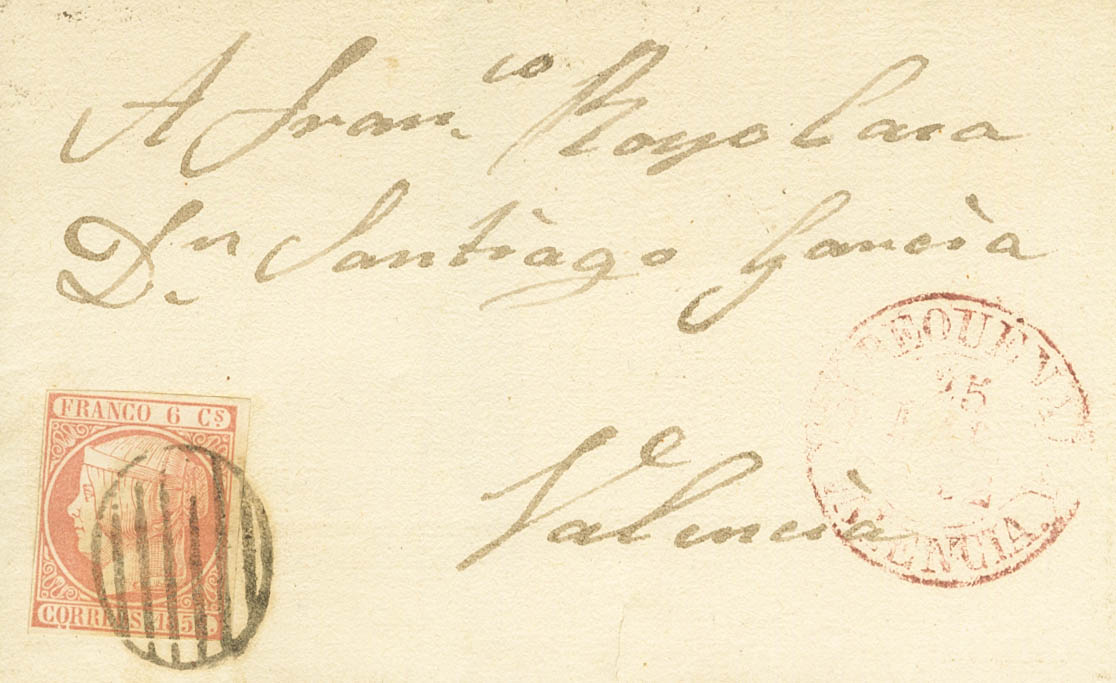 A Fran.co Royo Casa
Dn. Santiago Garcìa
Valencìa
FRANCO 6 Cs
CORREOS 185
REQUENA
25
VALENCIA